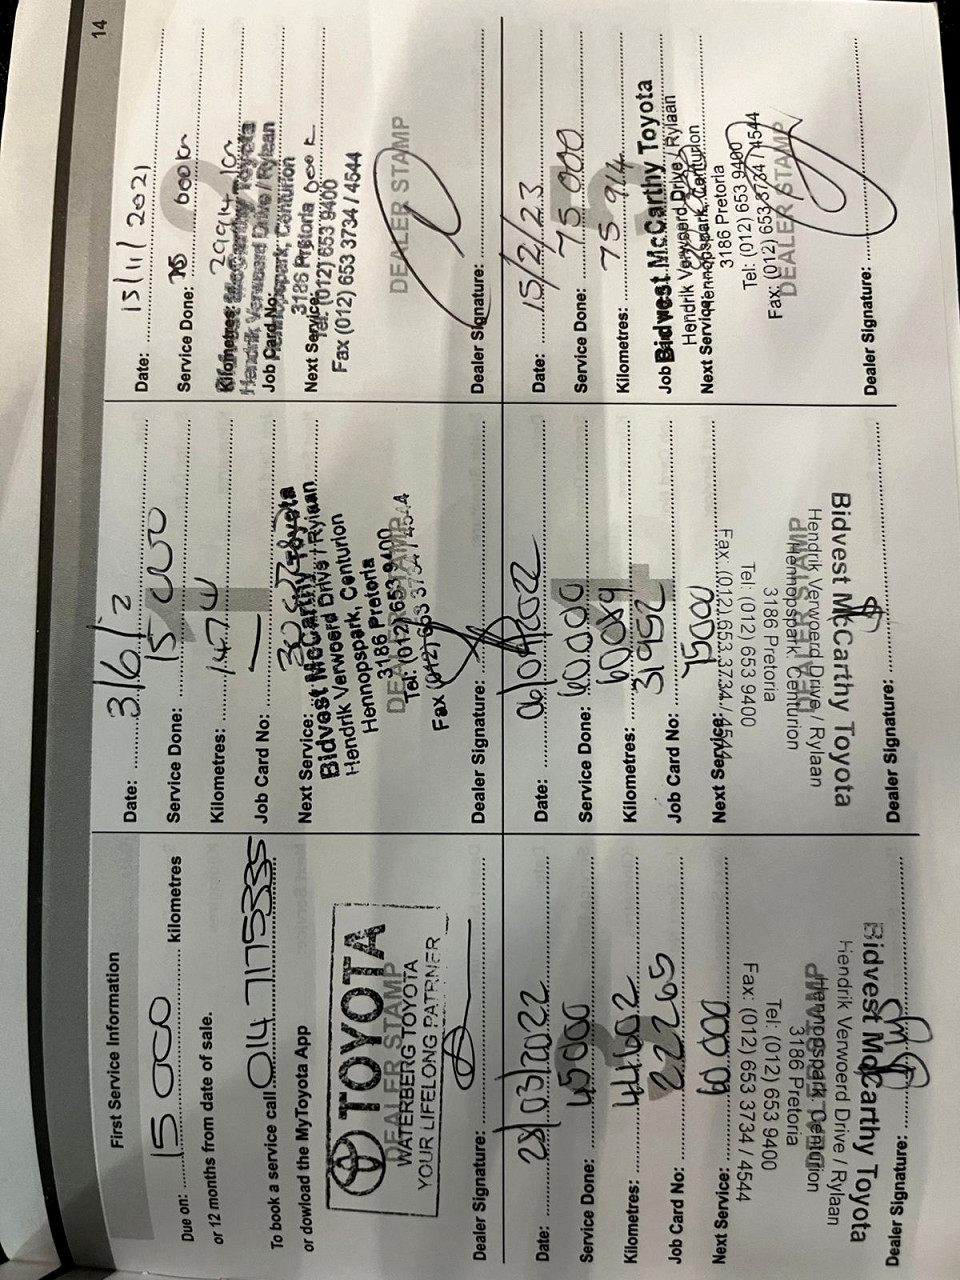 14
First Service Information
Due on: 15 000 kilometres
or 12 months from date of sale.
To book a service call 014 7175335
or dowload the MyToyota App
TOYOTA
DEALER STAMP
WATERBERG TOYOTA
YOUR LIFELONG PATRNER
Dealer Signature:
Date: 3/6/2
Service Done: 15 000
Kilometres:
Job Card No:
Next Service:
Bidvest McCarthy Toyota
Hendrik Verwoerd Drive / Rylaan
Hennopspark, Centurion
3186 Pretoria
DEALER STAMP
Tel: (012) 653 9400
Fax (012) 653 3734 / 4544
Dealer Signature:
Date: 15/11/2021
Service Done:
Kilometres: 29914 km
Hendrik Verwoerd Drive / Rylaan
Job Card No:
Hennopspark, Centurion
3186 Pretoria
Next Service:
Tel: (012) 653 9400
Fax (012) 653 3734 / 4544
DEALER STAMP
Dealer Signature:
Date: 28/03/2022
Service Done: 45000
Kilometres: 44602
Job Card No: 22265
Next Service: 60 000
Fax: (012) 653 3734 / 4544
Tel: (012) 653 9400
3186 Pretoria
Hennopspark, Centurion
Hendrik Verwoerd Drive / Rylaan
Bidvest McCarthy Toyota
Dealer Signature:
Date:
Service Done: 60000
Kilometres: 60089
Job Card No: 31952
Next Service: 75000
Fax: (012) 653 3734 / 4544
Tel: (012) 653 9400
3186 Pretoria
Hennopspark, Centurion
DEALER STAMP
Hendrik Verwoerd Drive / Rylaan
Bidvest McCarthy Toyota
Dealer Signature:
Date: 15/2/23
Service Done: 75 000
Kilometres: 75 914
Job
Bidvest McCarthy Toyota
Hendrik Verwoerd Drive / Rylaan
Next Service
Hennopspark, Centurion
3186 Pretoria
Tel: (012) 653 9400
Fax: (012) 653 3734 / 4544
DEALER STAMP
Dealer Signature: